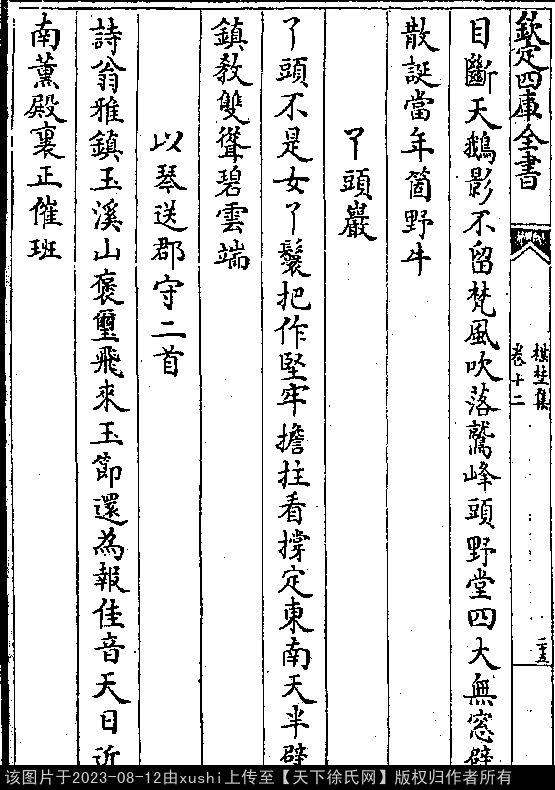 欽定四庫全書
卷十二
二五
目斷天鵝影不留梵風吹落鷲峰頭野堂四大無窓壁
散誕當年箇野牛
丫頭巖
丫頭不是女丫鬟把作堅牢擔拄看撐定東南天半壁
鎮教雙聳碧雲端
以琴送郡守二首
詩翁雅鎮玉溪山褒璽飛來玉節還為報佳音天日近
南薰殿裏正催班
该图片于2023-08-12由xushi上传至【天下徐氏网】版权归作者所有